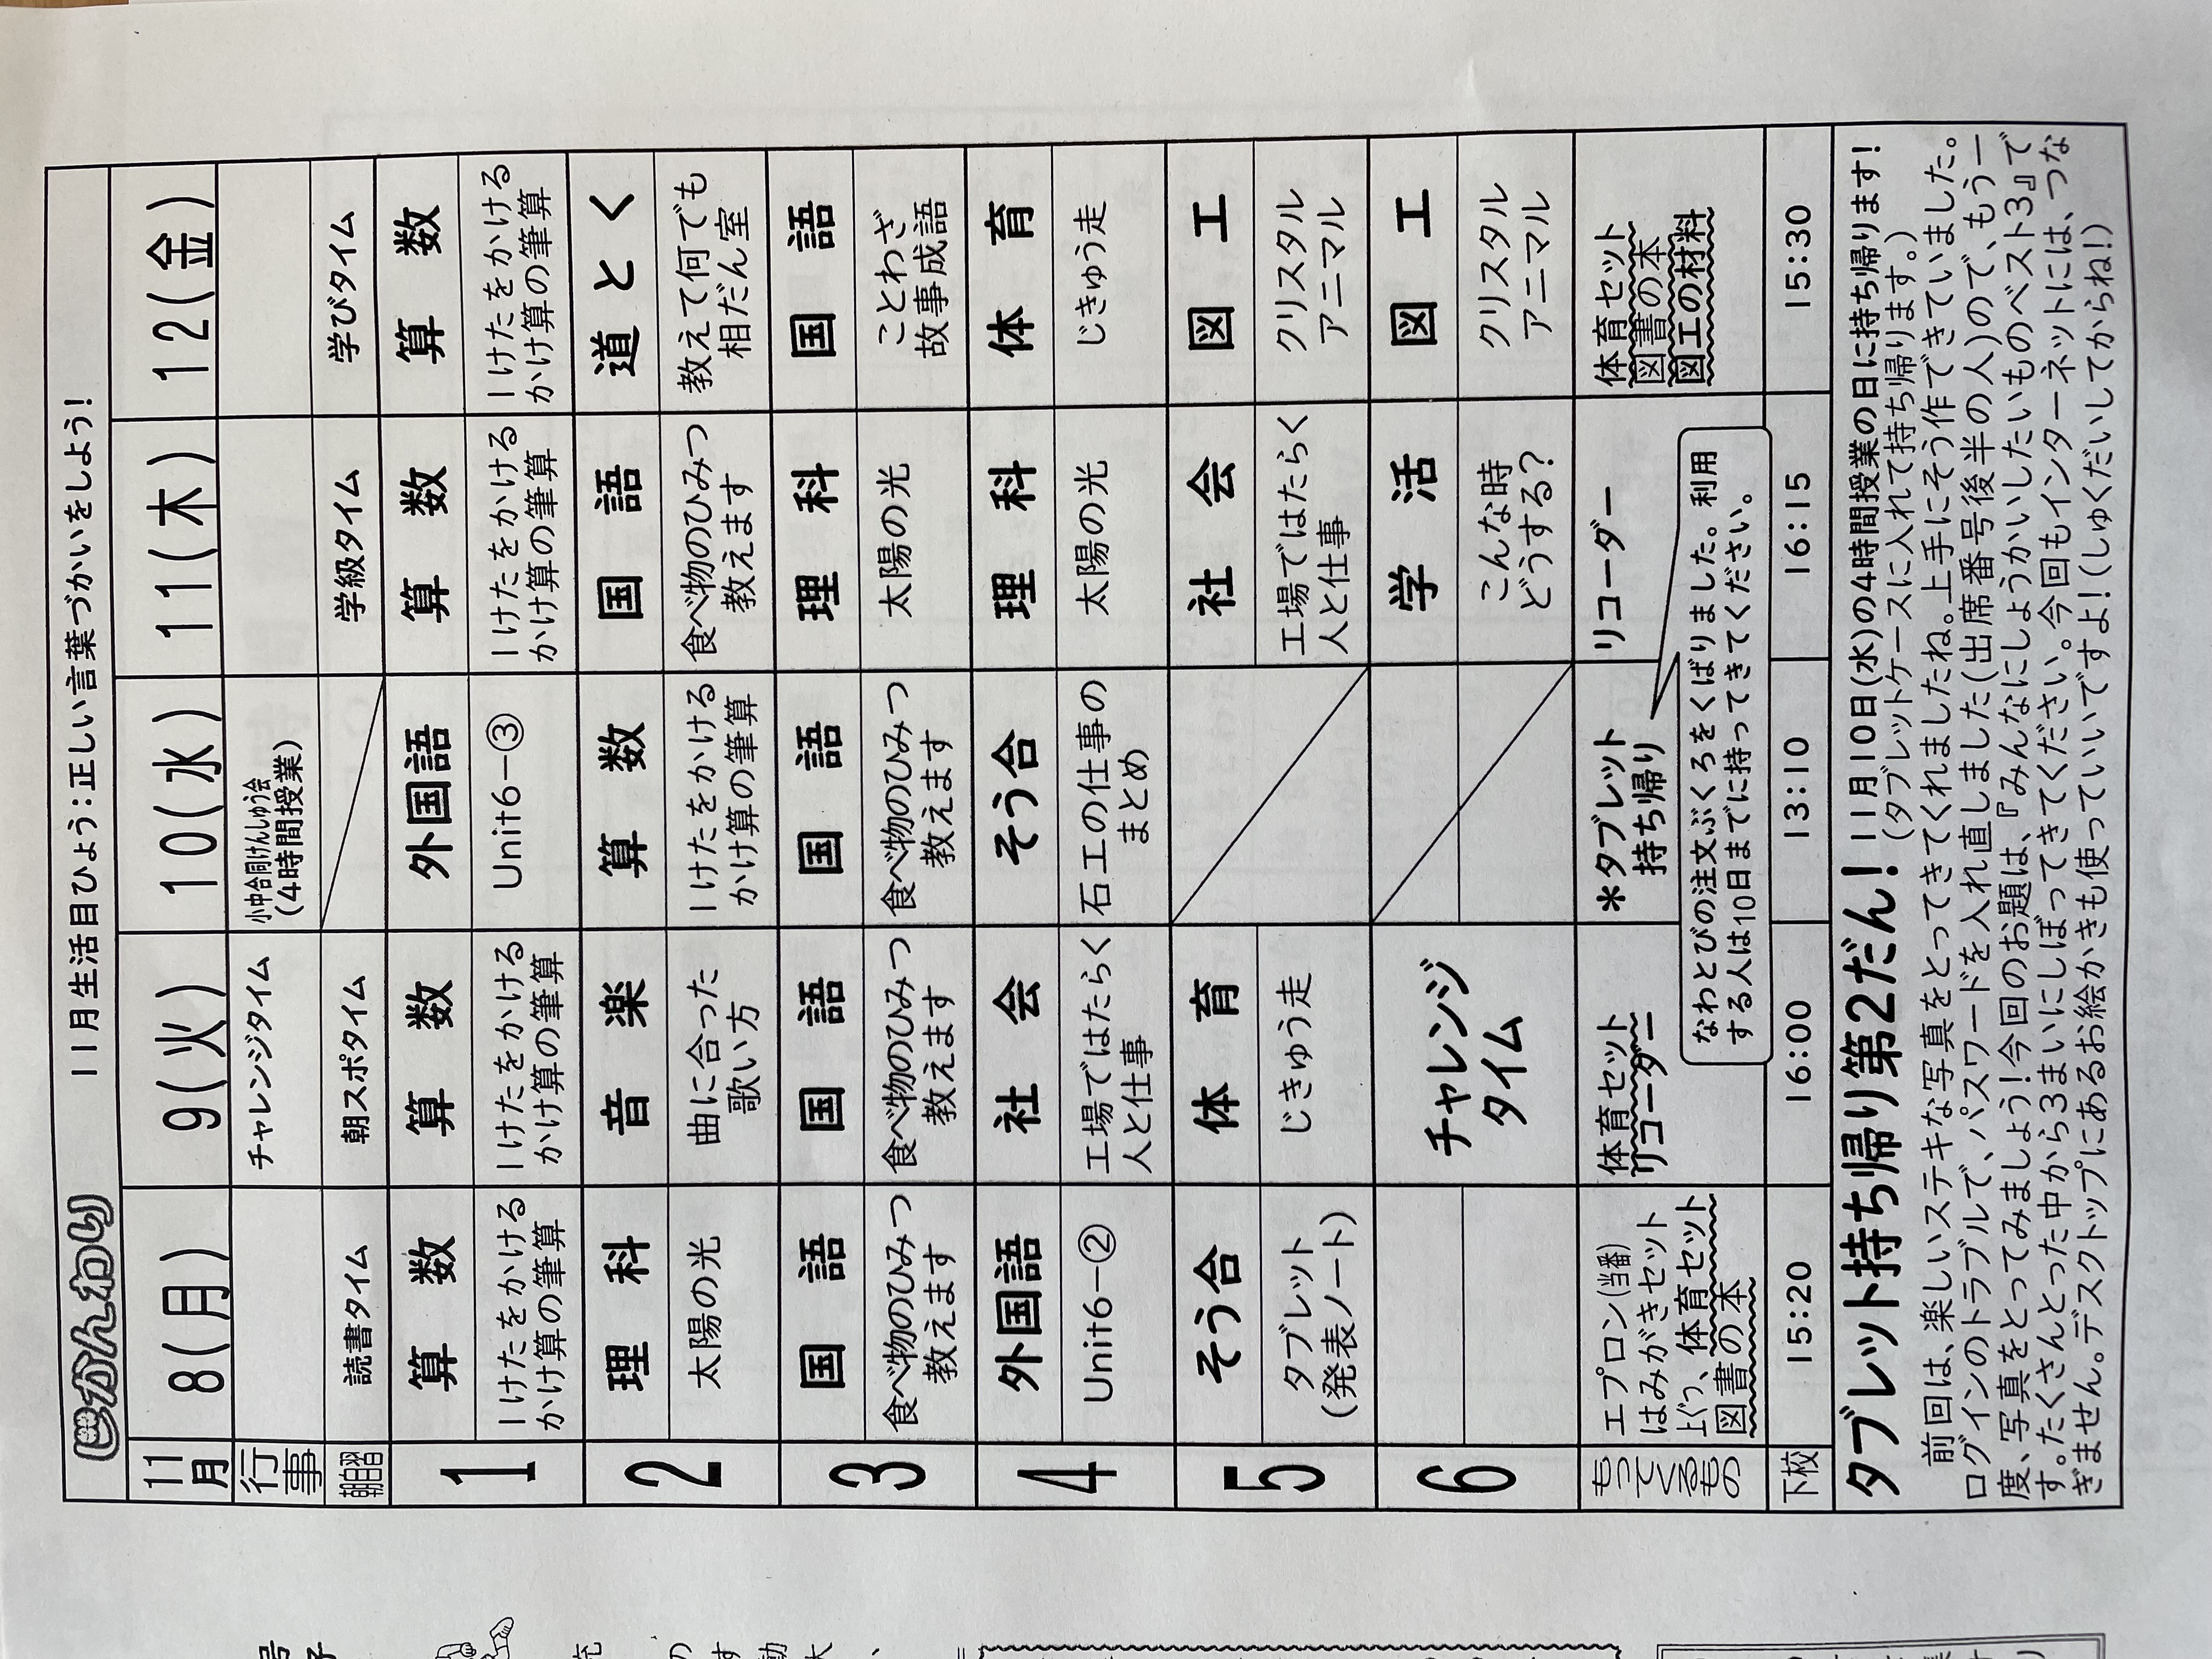 じかんわり
11月生活目ひょう：正しい言葉づかいをしよう！
11月 8(月) 9(火) 10(水) 11(木) 12(金)
行事 チャレンジタイム 小中合同けんしゅう会
(4時間授業)
朝自習 読書タイム 朝スポタイム 学級タイム 学びタイム
1 算数 算数 外国語 算数 算数
1けたをかける 1けたをかける Unit6-③ 1けたをかける 1けたをかける
かけ算の筆算 かけ算の筆算 かけ算の筆算 かけ算の筆算
2 理科 音楽 算数 国語 道とく
太陽の光 曲に合った 1けたをかける 食べ物のひみつ 教えて何でも
歌い方 かけ算の筆算 教えます 相だん室
3 国語 国語 国語 理科 国語
食べ物のひみつ 食べ物のひみつ 食べ物のひみつ 太陽の光 ことわざ
教えます 教えます 教えます 故事成語
4 外国語 社会 そう合 理科 体育
Unit6-② 工場ではたらく 石工の仕事の 太陽の光 じきゅう走
人と仕事 まとめ
5 そう合 体育 社会 図工
タブレット じきゅう走 工場ではたらく クリスタル
(発表ノート) 人と仕事 アニマル
6 チャレンジ 学活 図工
タイム こんな時 クリスタル
どうする？ アニマル
もってくるもの エプロン(当番) 体育セット ＊タブレット リコーダー 体育セット
はみがきセット リコーダー 持ち帰り 図書の本
上ぐつ、体育セット 図工の材料
図書の本
なわとびの注文ぶくろをくばりました。利用
する人は10日までに持ってきてください。
下校 15:20 16:00 13:10 16:15 15:30
タブレット持ち帰り第2だん！11月10日(水)の4時間授業の日に持ち帰ります！
(タブレットケースに入れて持ち帰ります。)
前回は、楽しいステキな写真をとってきてくれましたね。上手にそう作できていました。
ログインのトラブルで、パスワードを入れ直しました(出席番号後半の人)ので、もう一
度、写真をとってみましょう！今回のお題は、『みんなにしょうかいしたいものベスト3』で
す。たくさんとった中から3まいにしぼってきてください。今回もインターネットには、つな
ぎません。デスクトップにあるお絵かきも使っていいですよ！(しゅくだいしてからね！)